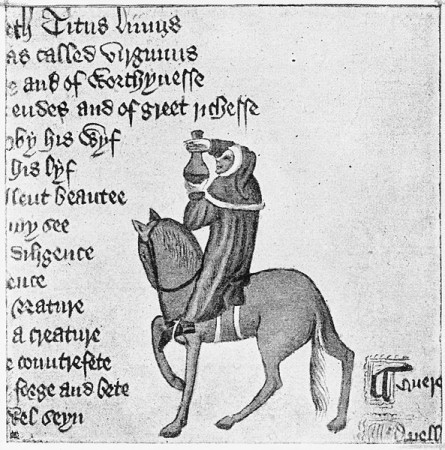 eth Titus liuius
as called virginius
e and of worthynesse
endes and of greet richesse
by his wyf
his lyf
llent beautee
may see
diligence
ence
nature
a creature
e countrefete
forge and bete
wel seyn
dwell